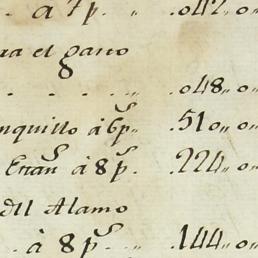 à 7 p. „ .042„ o„
ra el gasto
. . . . . .048„ o„
nquillo à 6 p.s „ .51o„ o„
Erian.s à 8 p.s .224„ o„
del Alamo
. à 8 p.s „ .144„ o„